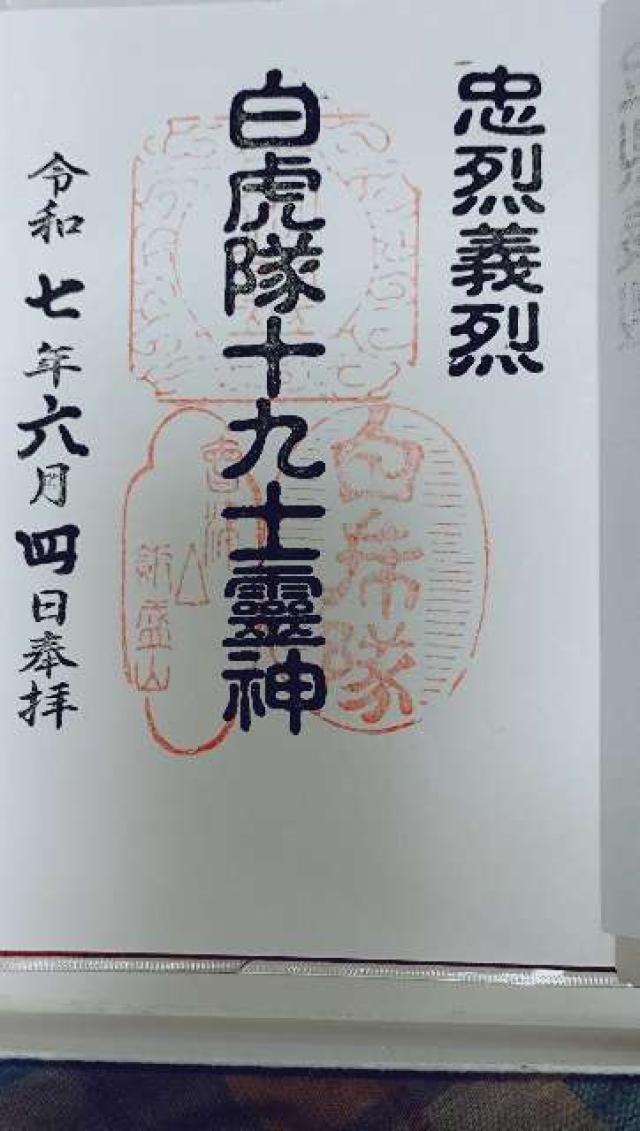 忠烈義烈
白虎隊十九士靈神
令和七年六月四日奉拝
白帍隊
会津
飯盛山